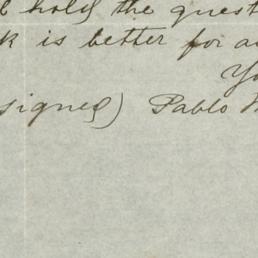 hold the quest
k is better for a
Yo
signed) Pablo